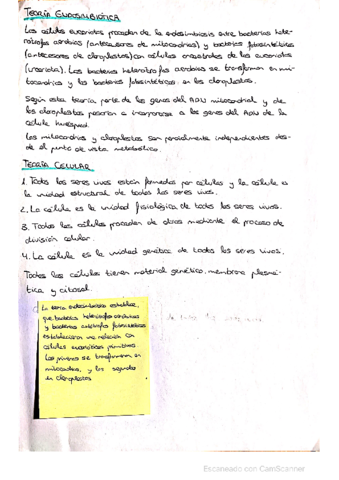 TEORÍA ENDOSIMBIÓTICA
Las células eucariotas proceden de la endosimbiosis entre bacterias hete-
rótrofas aerobias (antecesores de mitocondrias) y bacterias fotosintéticas
(antecesores de cloroplastos) con células ancestrales de las eucariotas
(urcariota). Las bacterias heterótrofas aerobias se transforman en mi-
tocondrias y las bacterias fotosintéticas, en los cloroplastos.
Según esta teoría parte de los genes del ADN mitocondrial y de
los cloroplastos pasaron a incorporarse a los genes del ADN de la
célula huésped.
Las mitocondrias y cloroplastos son parcialmente independientes des-
de el punto de vista metabólico.
TEORÍA CELULAR
1. Todos los seres vivos están formados por células y la célula es
la unidad estructural de todos los seres vivos.
2. La célula es la unidad fisiológica de todos los seres vivos.
3. Todas las células proceden de otras mediante el proceso de
división celular.
4. La célula es la unidad genética de todos los seres vivos.
Todas las células tienen material genético, membrana plasmá-
tica y citosol.
La teoría endosimbiótica establece,
que bacterias heterótrofas aerobias
y bacterias autótrofas fotosintéticas
establecieron una relación con
células eucarióticas primitivas.
Las primeras se transformaron en
mitocondrias, y las segundas
en cloroplastos
Escaneado con CamScanner